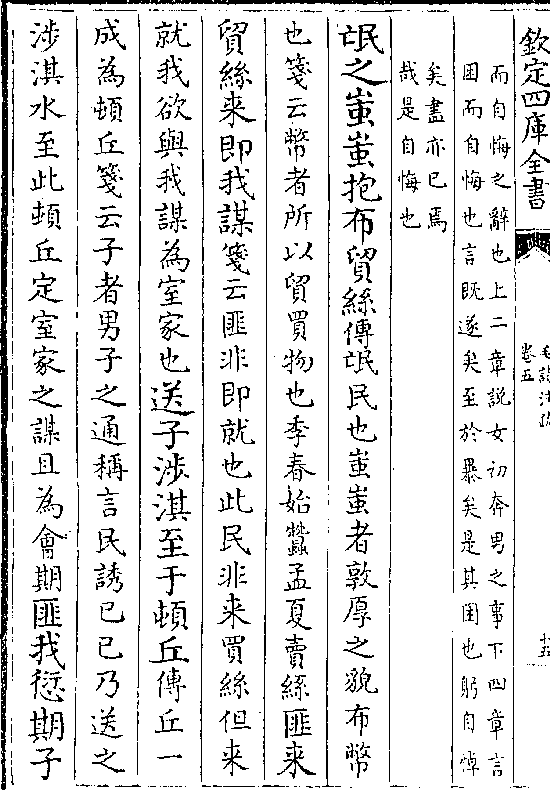 欽定四庫全書
卷五
而自悔之辭也上二章說女初奔男之事下四章言
困而自悔也言既遂矣至於暴矣是其困也躬自悼
矣盡亦已焉
哉是自悔也
氓之蚩蚩抱布貿絲傳氓民也蚩蚩者敦厚之貌布幣
也箋云幣者所以貿買物也季春始蠶孟夏賣絲匪来
貿絲来即我謀箋云匪非即就也此民非来買絲但来
就我欲與我謀為室家也送子涉淇至于頓丘傳丘一
成為頓丘箋云子者男子之通稱言民誘己己乃送之
涉淇水至此頓丘定室家之謀且為會期匪我愆期子